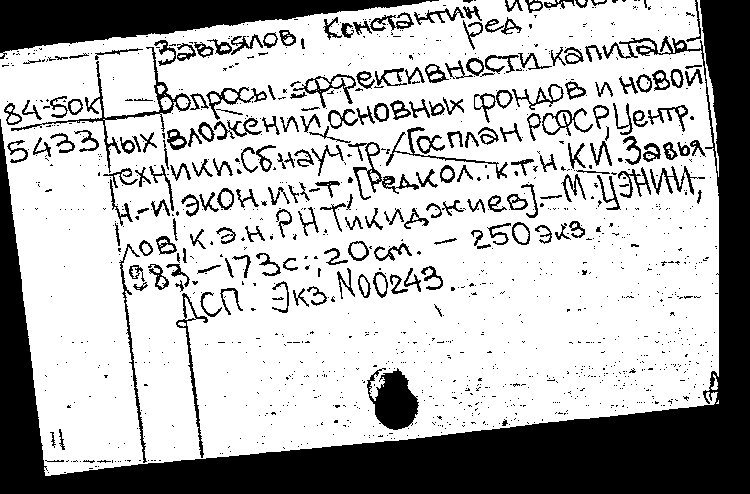 Завьялов, Константин Иванович,
ред.
84-50к
5433
Вопросы эффективности капиталь-
ных вложений, основных фондов и новой
техники: Сб. науч. тр. / Госплан РСФСР, Центр.
н.-и. экон. ин-т; [Ред.кол.: к.т.н. К.И. Завья-
лов, к.э.н. Р.Н. Тикиджиев]. – М.: ЦЭНИИ,
1983. – 173 с.; 20 см. – 250 экз.
ДСП. Экз. N00243.
11